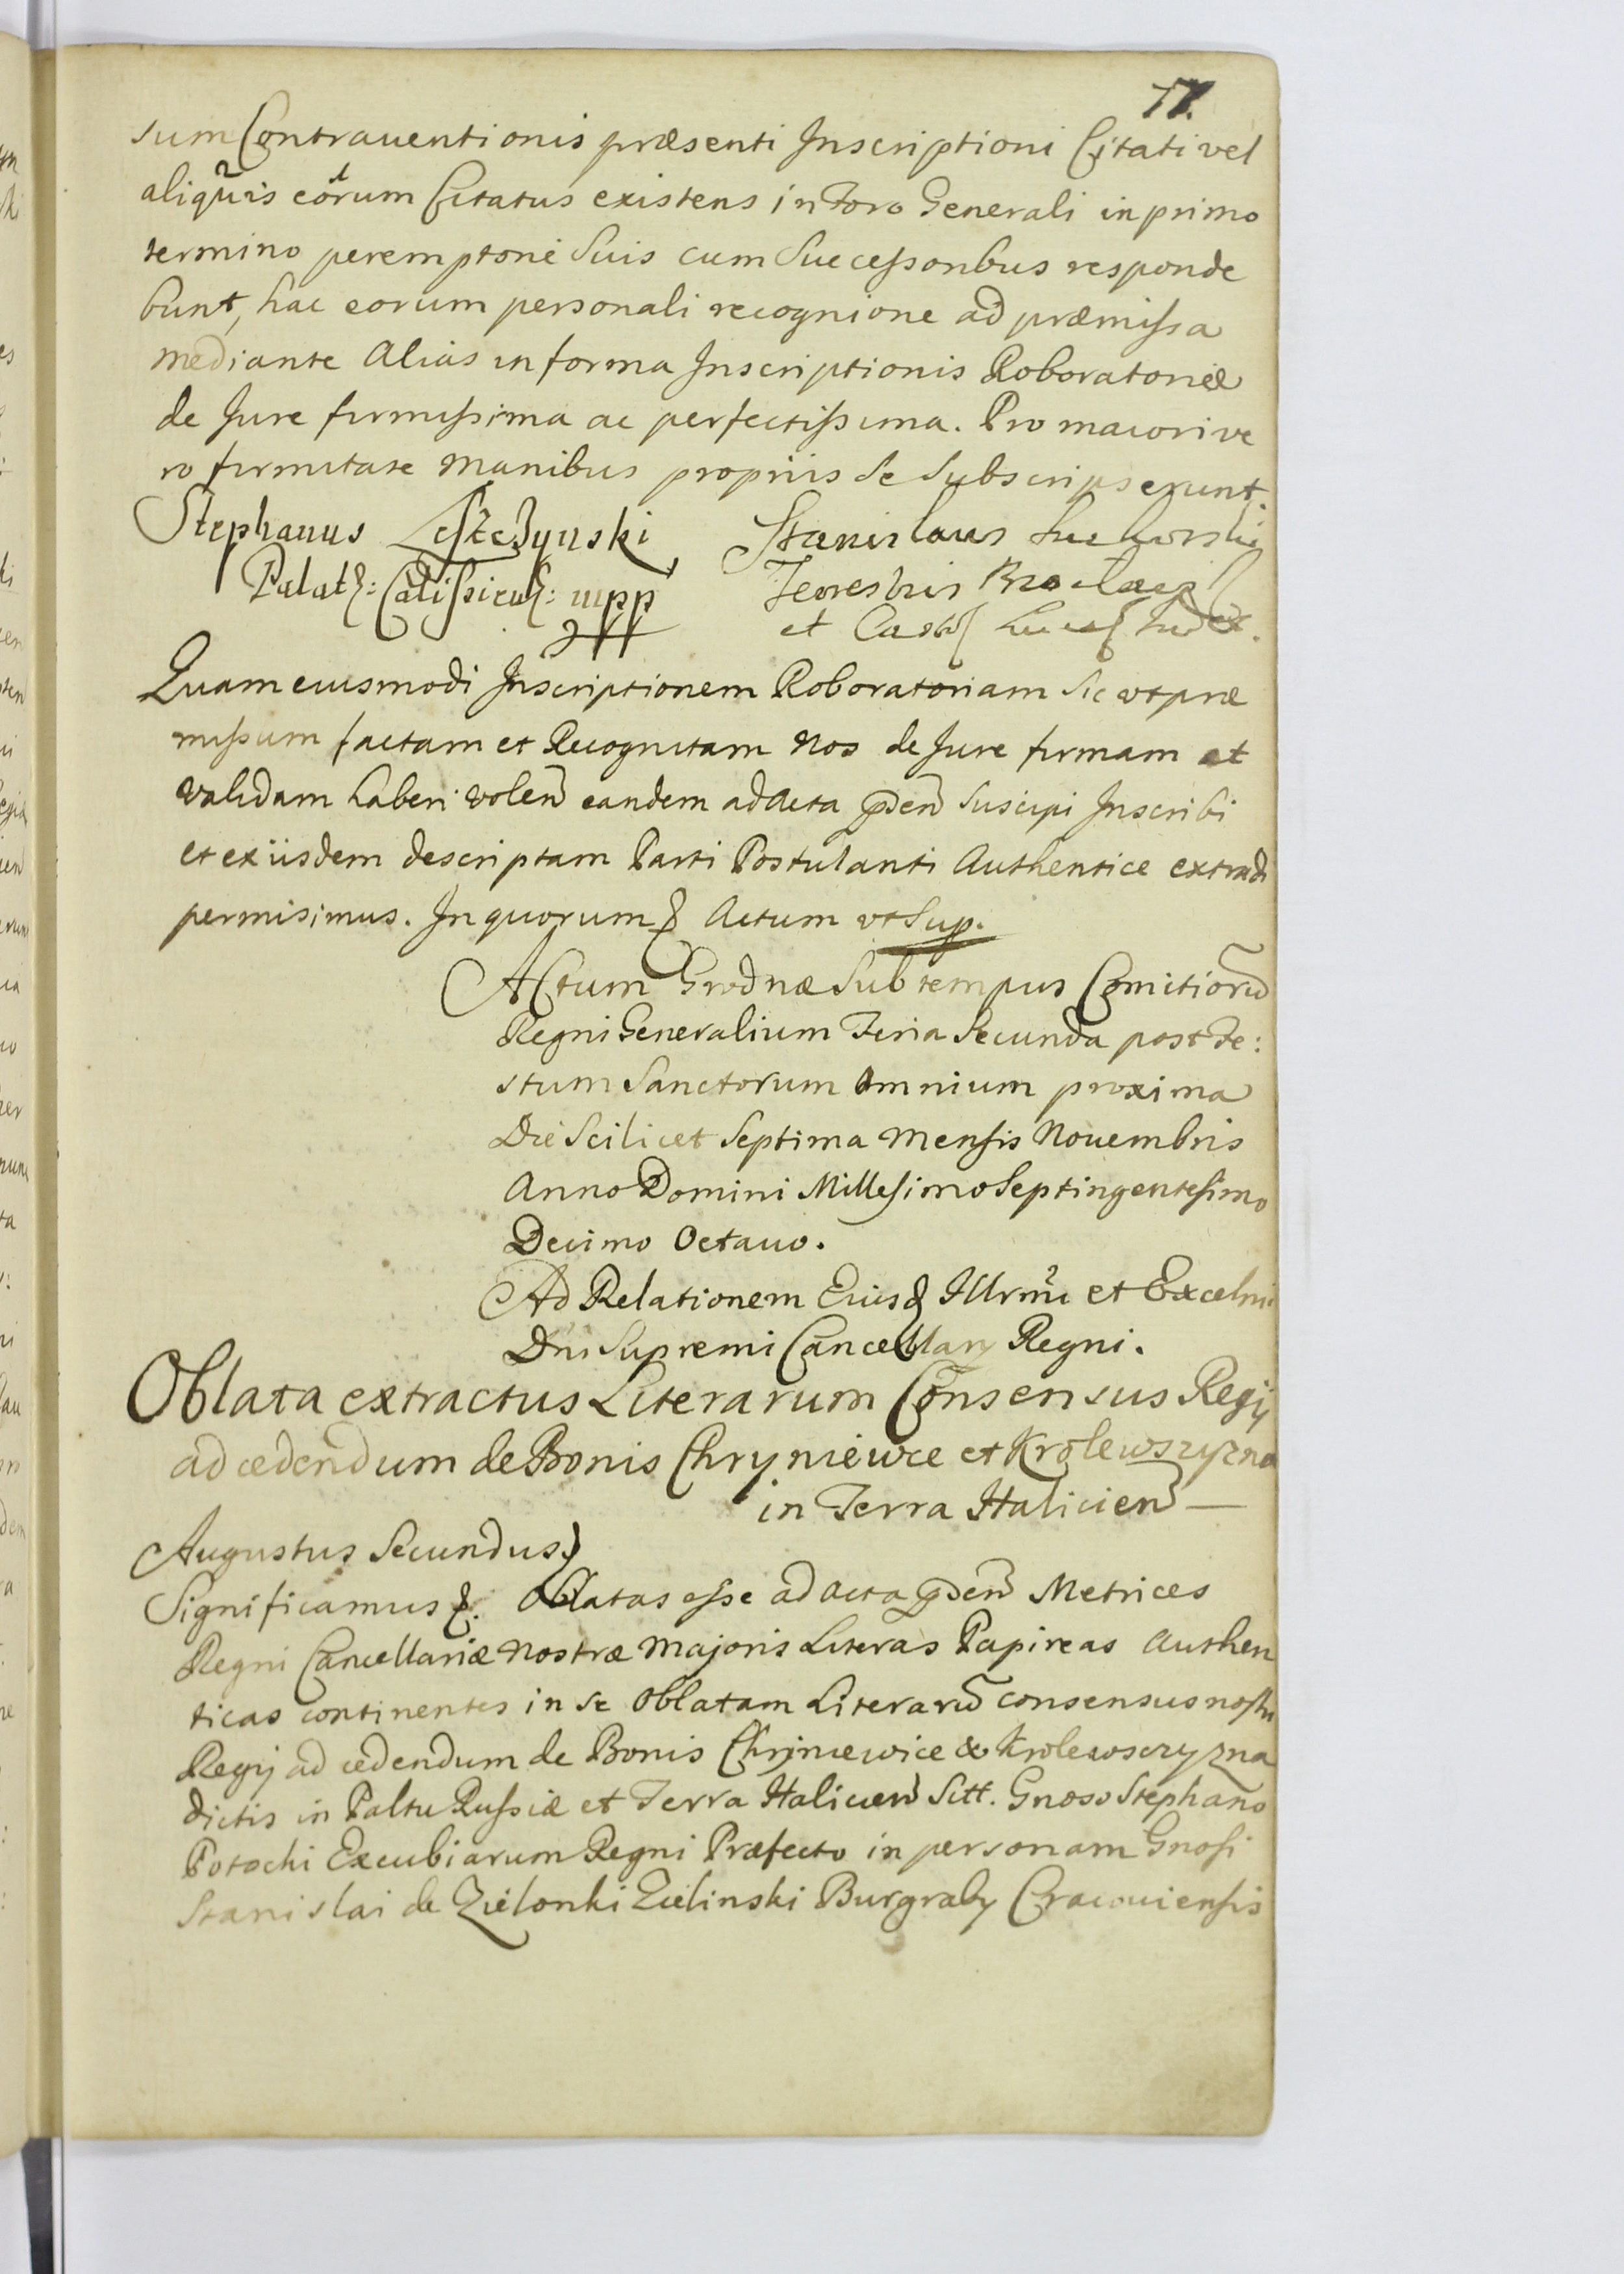 77.
sum Contrauentionis præsenti Inscriptioni Citati vel
aliquis eorum Citatus existens in Foro Generali in primo
termino peremptorie Suis cum Successoribus responde
bunt, hac eorum personali recognione ad præmissa
mediante Alias in forma Inscriptionis Roboratoriæ
de Jure firmissima ac perfectissima. Pro maiori ve
ro firmitate manibus propriis Se Subscripserunt.
Stephanus Leszczynski Stanislaus
Palat: Calissien: mpp Terrestris
et Cast
Quam euismodi Inscriptionem Roboratoriam Sic ut præ
missum factam et Recognitam Nos de Jure firmam et
validam haberi volen eandem ad Acta pden Suscipi Inscribi
et ex iisdem descriptam Parti Postulanti Authentice extradi
permisimus. In quorum & Actum ut Sup.
Actum Grodnæ Sub tempus Comitioru
Regni Generalium Feria Secunda post Fe:
stum Sanctorum Omnium proxima
Die Scilicet Septima Mensis Nouembris
Anno Domini Millesimo Septingentesimo
Decimo Octauo.
Ad Relationem Eius & Illrmi et Excelmi
Dni Supremi Cancellary Regni.
Oblata extractus Literarum Consensus Regij
ad cedendum de Bonis Chryniewce et Krolewszyzna
in Terra Halicien
Augustus Secundus
Significamus &. Oblatas esse ad Acta pden Metrices
Regni Cancellariæ Nostræ Majoris Literas Papireas Authen
ticas continentes in Se Oblatam Literaru consensus nostri
Regij ad cedendum de Bonis Chryniewice & Krolewszczyzna
dictis in Paltu Russiæ et Terra Halicien Sitt. Gnoso Stephano
Potocki Excubiarum Regni Præfecto in personam Gnosi
Stanislai de Zielonki Zielinski Burgraby Cracouiensis